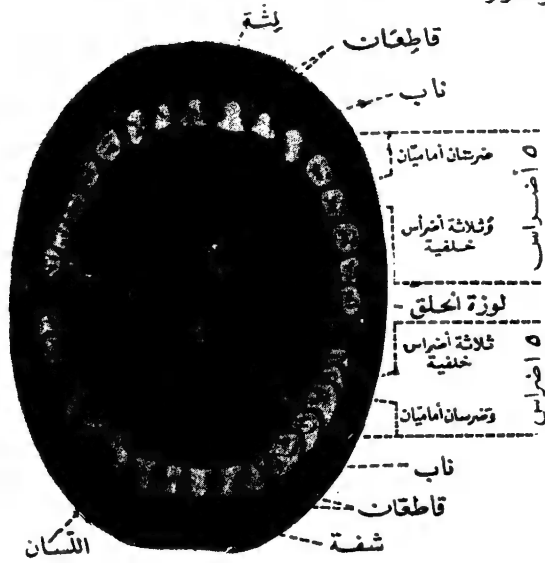 لِثَّة
قاطِعَات
ناب
ضرستان أماميّان
وَثلاثة أضراس
خلفية
٥ أضراس
لوزة الحلق
ثلاثة أضراس
خلفية
وَضرسان أماميّان
٥ اضراس
ناب
قاطعَات
شفة
اللّسان